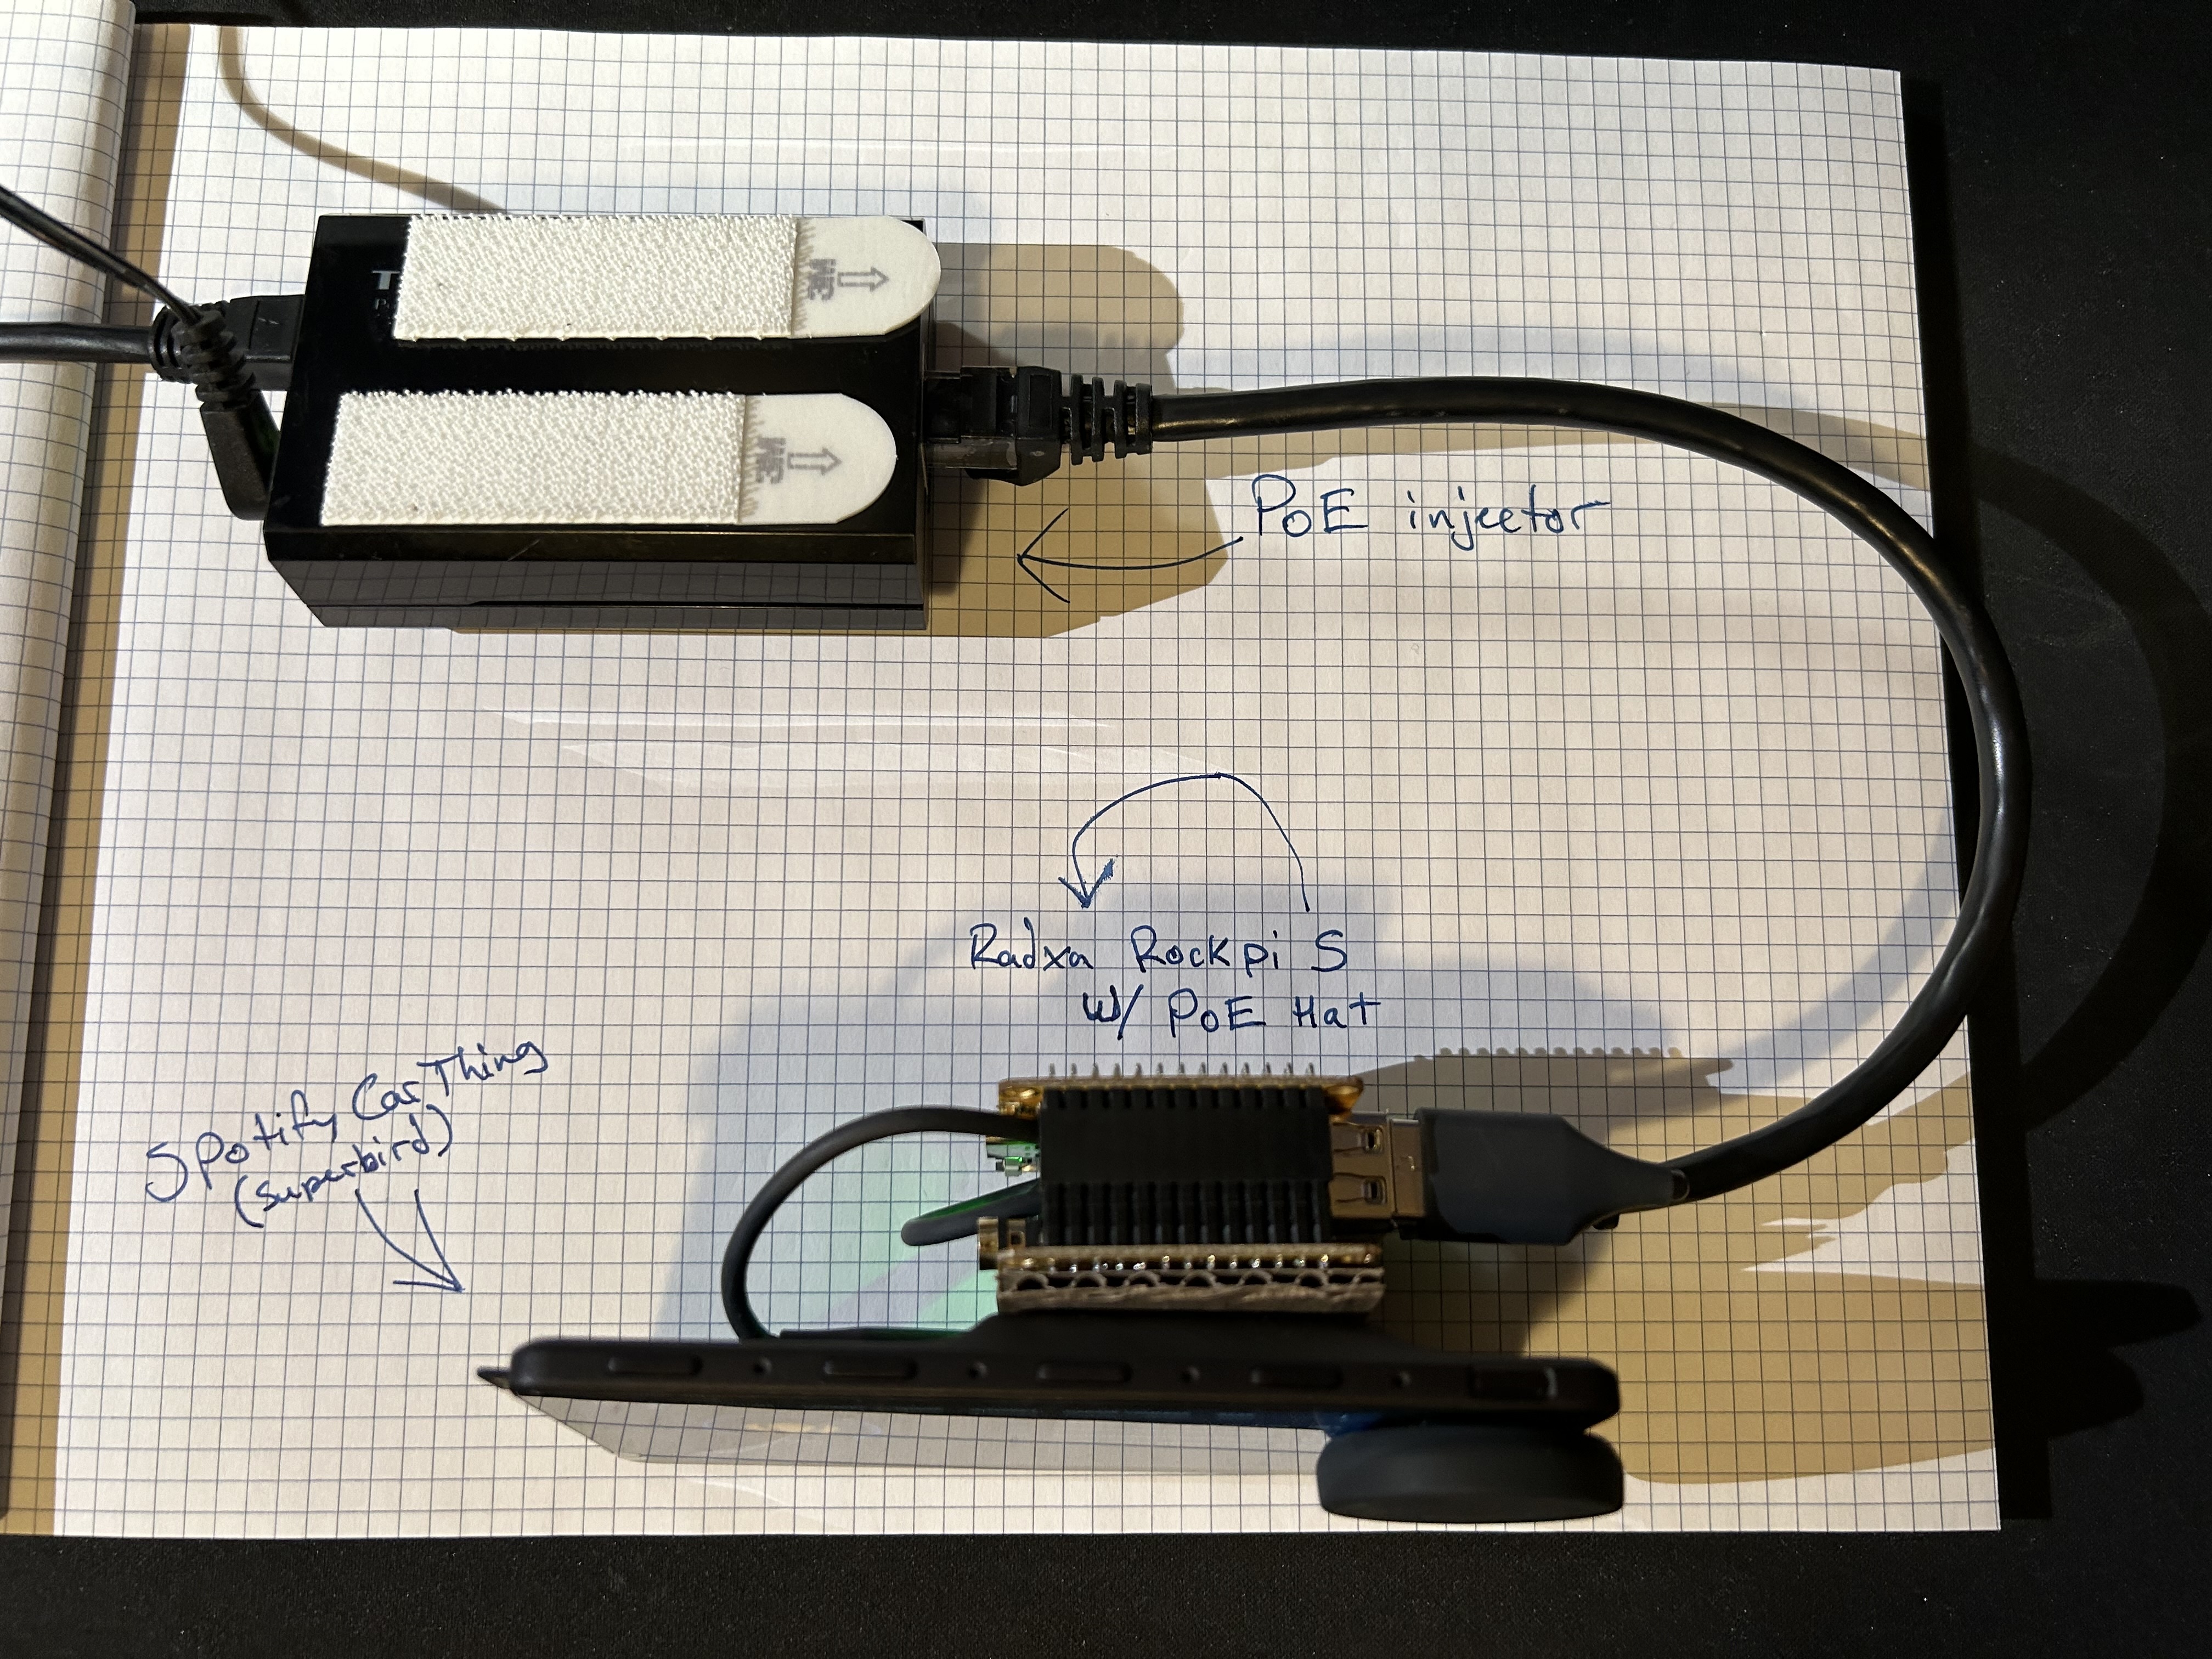 3M
3M
PoE injector
Radxa Rockpi S
w/ PoE Hat
Spotify Car Thing
(superbird)